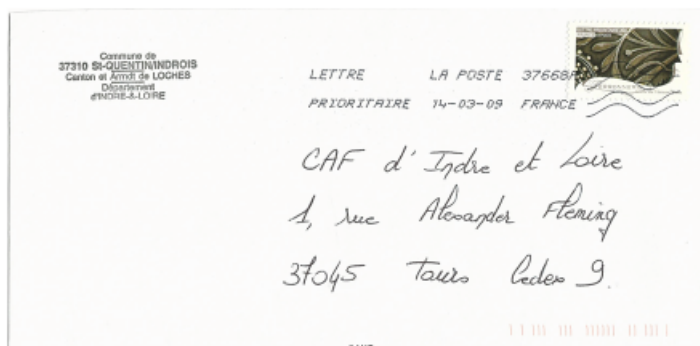 Commune de
37310 St-QUENTIN/INDROIS
Canton et Arrndt de LOCHES
Département
d'INDRE-&-LOIRE
LETTRE LA POSTE 37668A
PRIORITAIRE 14-03-09 FRANCE
CAF d'Indre et Loire
1, rue Alexander Fleming
37045 Tours Cedex 9.